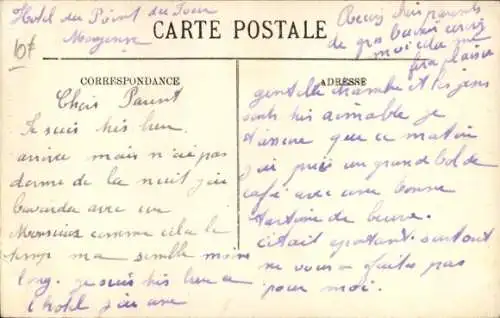 Hotel du Point du Jour
Mayenne
10f
CARTE POSTALE
Recois chers parents
de gros baisers
moi cela me
fera plaisir
CORRESPONDANCE
Chers Parent
Je suis tres bien
arrivee mais n'ai pas
dormi de la nuit j'ai
bavarder avec un
Monsieur comme cela le
temp ma semble moins
long. je suis tres bien a
l'hotel j'ai une
ADRESSE
gentille chambre et les jens
sonts tres aimable je
t'assure que ce matin
j'ai pris un grand bol de
café avec une bonne
tartine de beurre.
c'était epatant. surtout
ne vous en faites pas
pour moi.